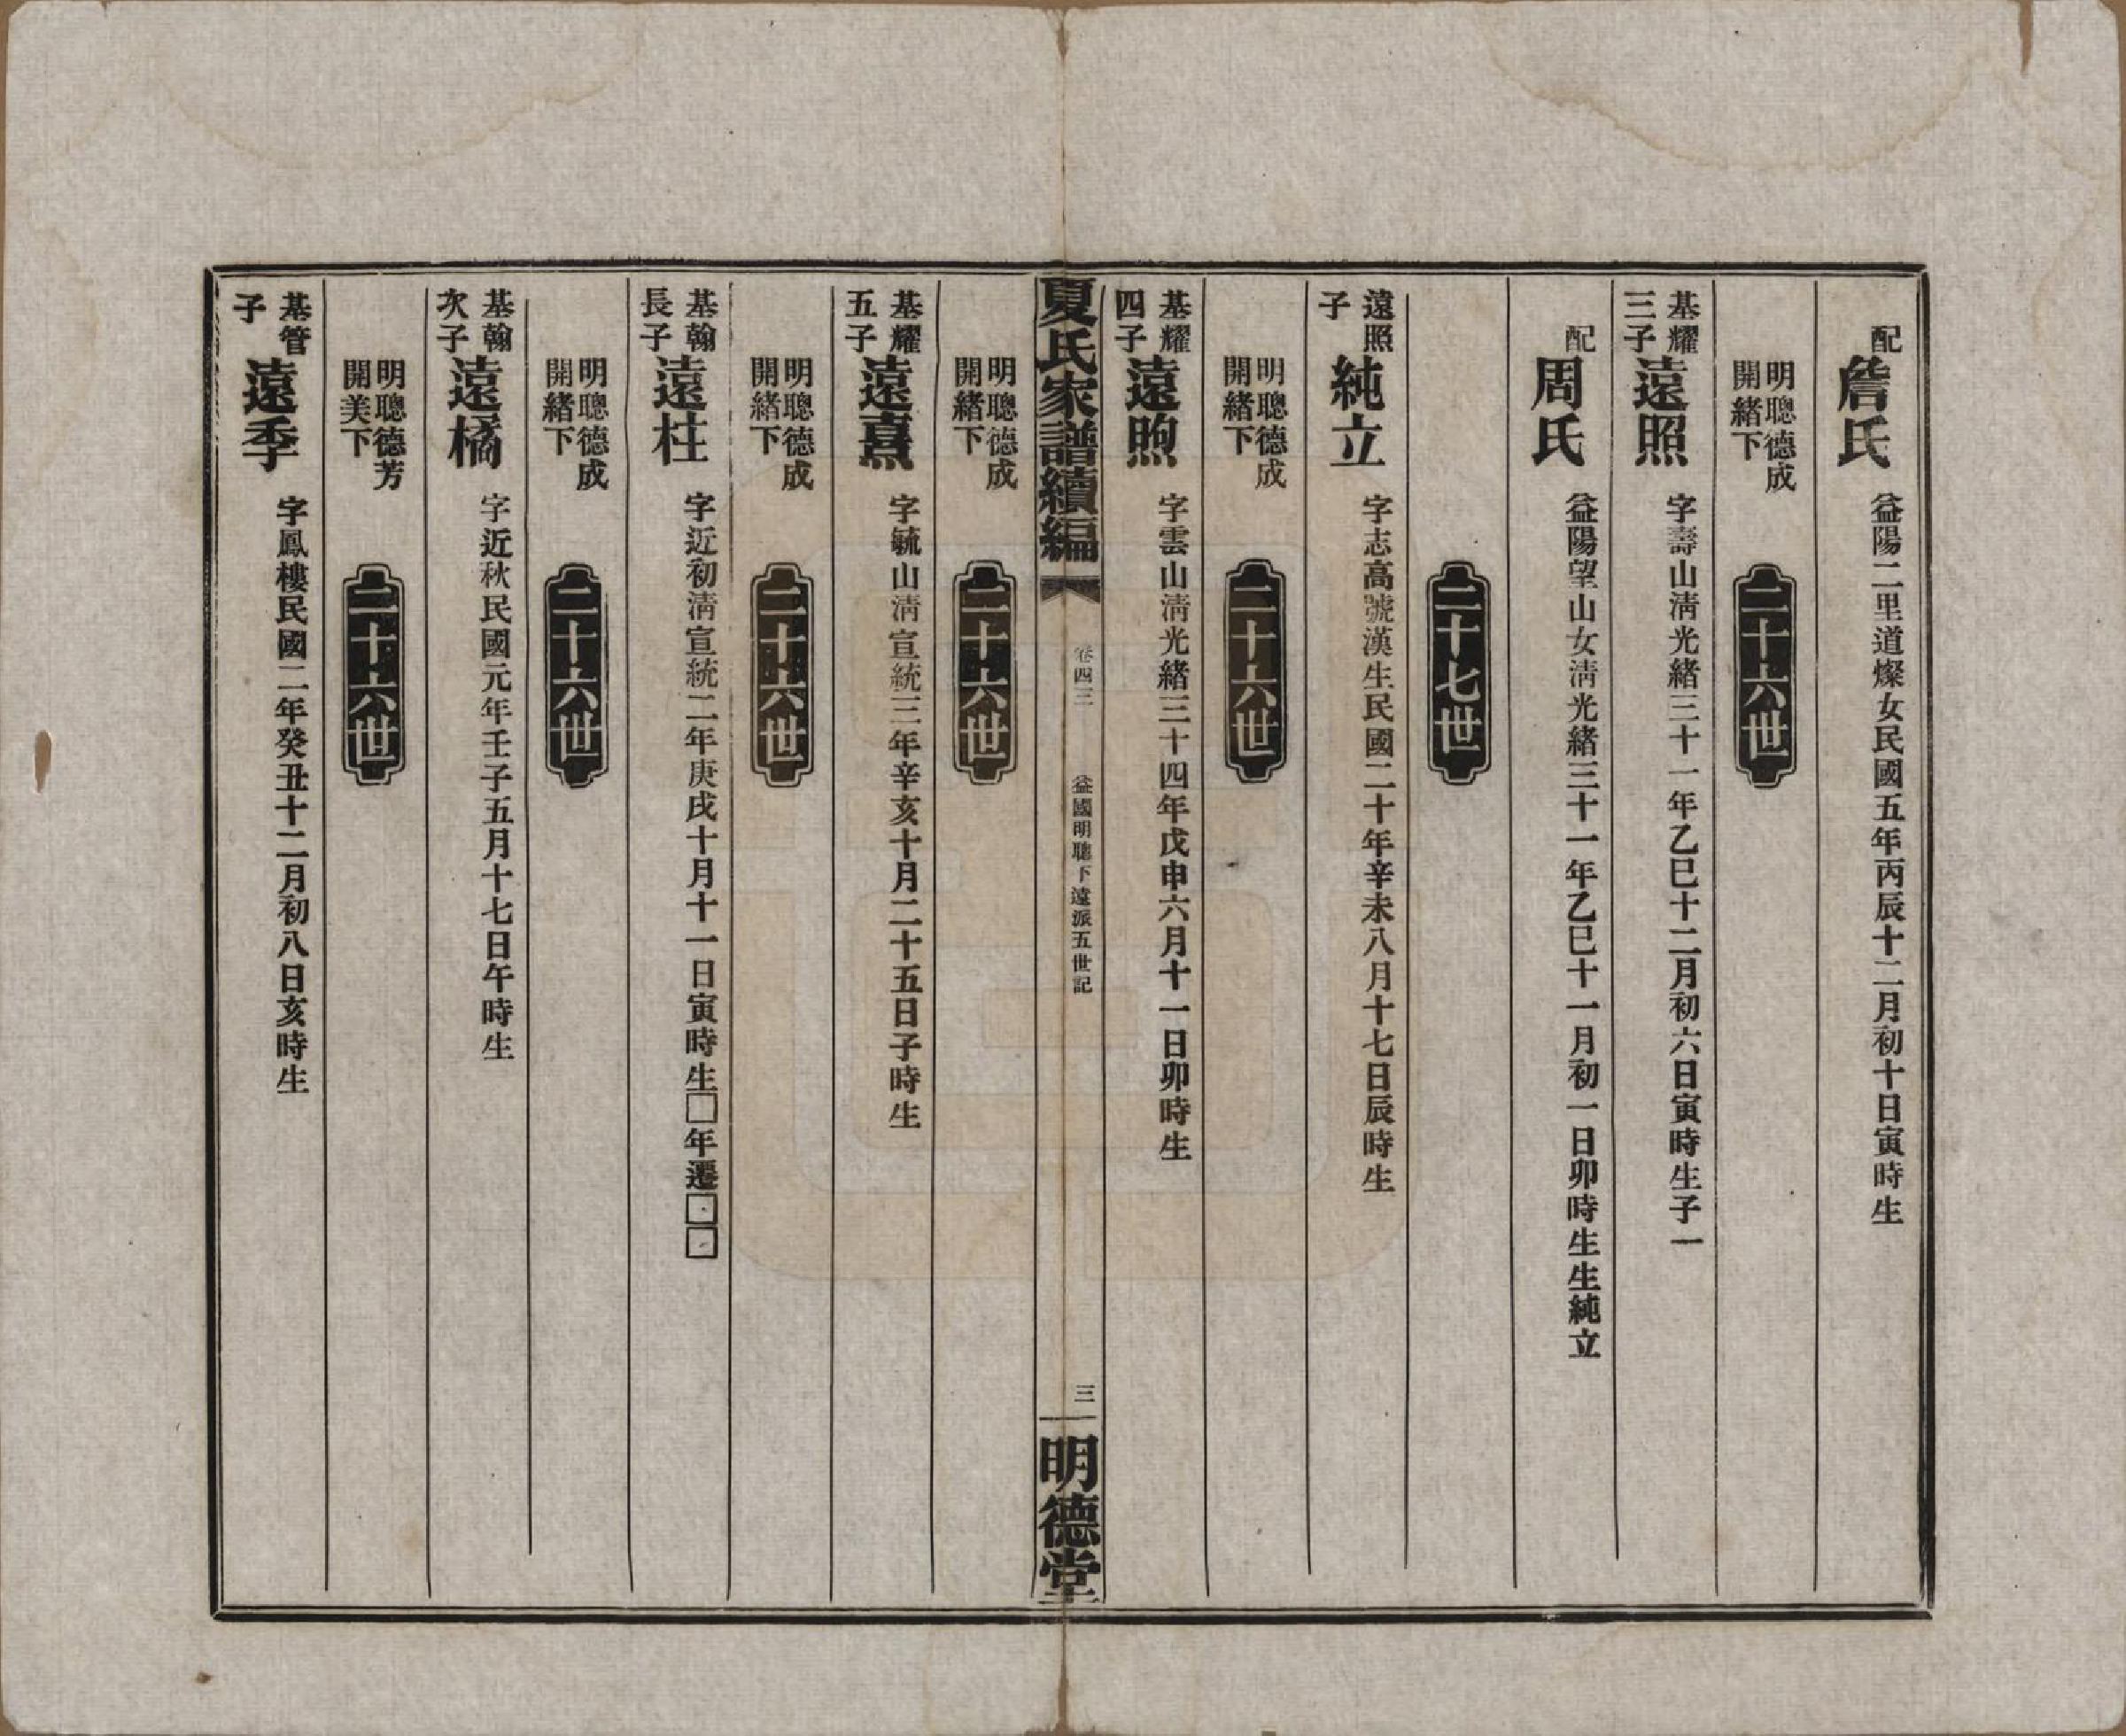 配詹氏 益陽二里道燦女民國五年丙辰十二月初十日寅時生
明聰德成開緒下 二十六世
基耀三子遠照 字壽山淸光緒三十一年乙巳十二月初六日寅時生子一
配周氏 益陽望山女淸光緒三十一年乙巳十一月初一日卯時生生純立
二十七世
遠照子純立 字志高號漢生民國二十年辛未八月十七日辰時生
明聰德成開緒下 二十六世
基耀四子遠煦 字雲山淸光緒三十四年戊申六月十一日卯時生
夏氏家譜續編 卷四三 益國明聰下遠派五世記 三 明德堂
明聰德成開緒下 二十六世
基耀五子遠熹 字毓山淸宣統三年辛亥十月二十五日子時生
明聰德成開緒下 二十六世
基翰長子遠柱 字近初淸宣統二年庚戌十月十一日寅時生□年遷□□
明聰德成開緒下 二十六世
基翰次子遠橘 字近秋民國元年壬子五月十七日午時生
明聰德芳開美下 二十六世
基管子遠季 字鳳樓民國二年癸丑十二月初八日亥時生